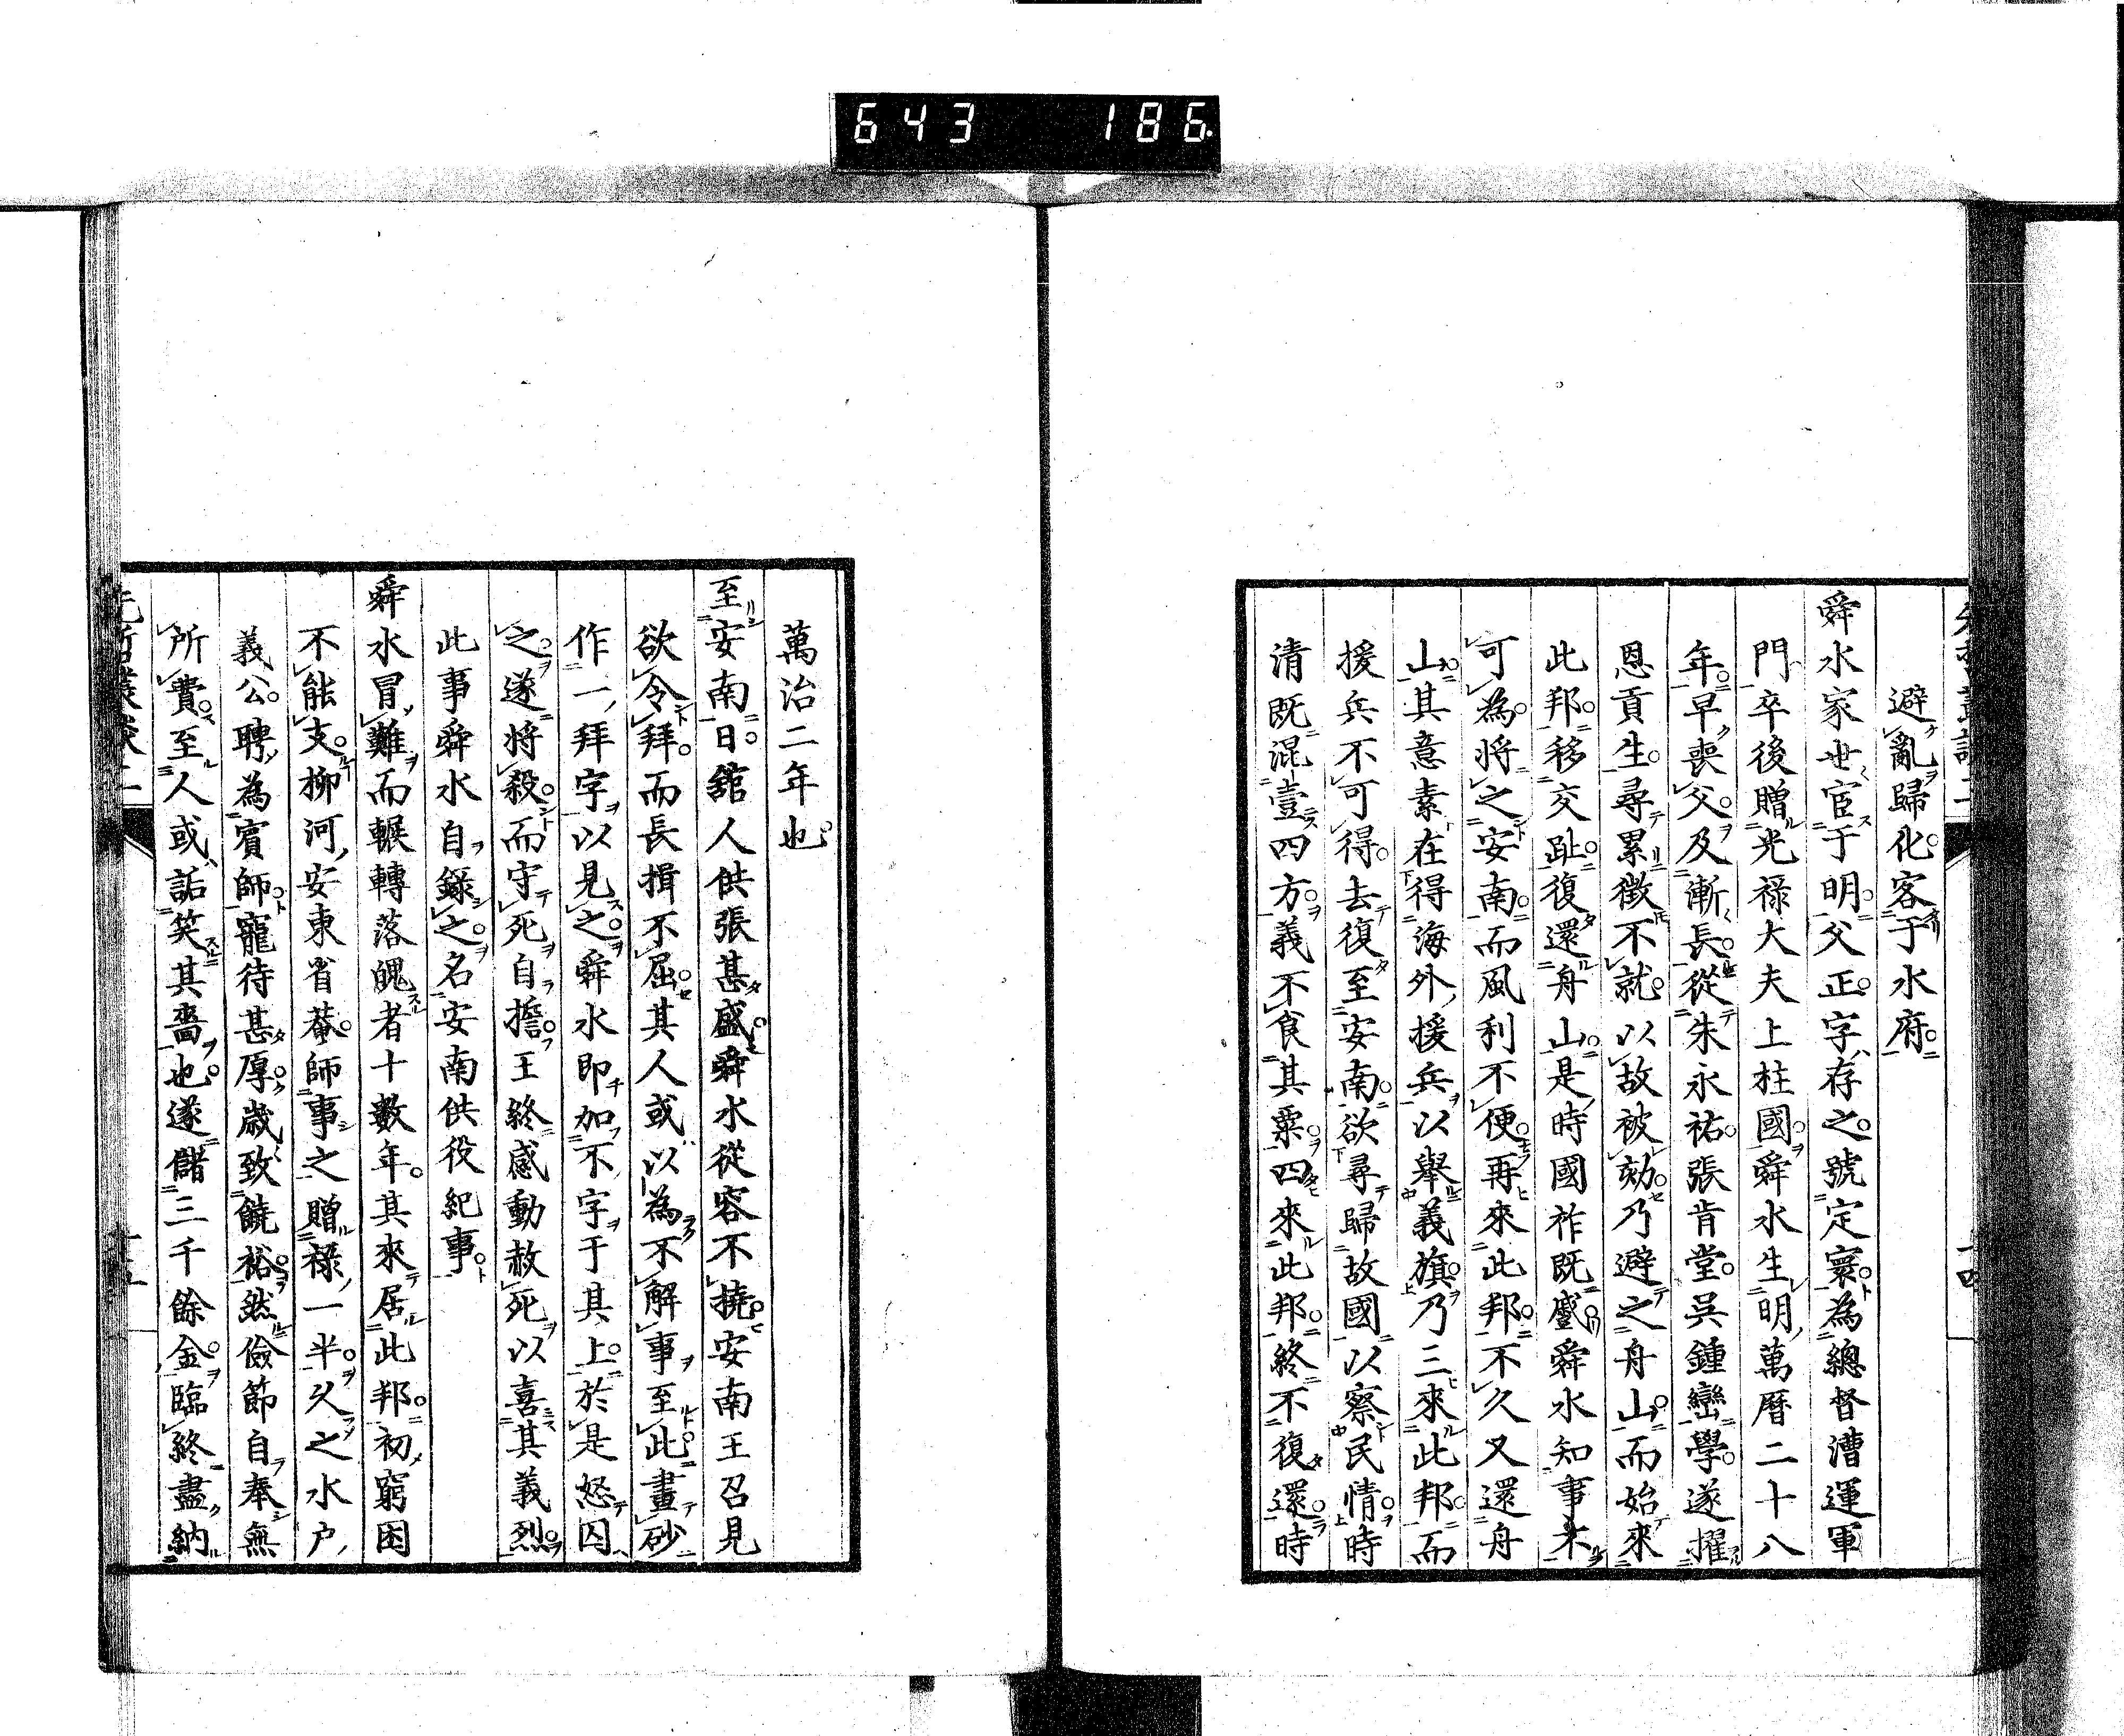 643 186
避亂歸化客于水府
舜水家世宦于明父正字存之號定寰為總督漕運軍
門卒後贈光祿大夫上柱國舜水生明萬曆二十八
年早喪父及漸長從朱永祐張肯堂吳鍾巒學遂擢
恩貢生尋累徵不就以故被劾乃避之舟山而始來
此邦移交趾復還舟山是時國祚既蹙舜水知事未
可為將之安南而風利不便再來此邦不久又還舟
山其意素在得海外援兵以舉義旗乃三來此邦而
援兵不可得去復至安南欲尋歸故國以察民情時
清既混壹四方義不食其粟四來此邦終不復還時
萬治二年也
至安南日舘人供張甚盛舜水從容不撓安南王召見
欲令拜而長揖不屈其人或以為不解事至此畫砂
作一拜字以見之舜水即加不字于其上於是怒囚
之遂將殺而守死自擔王終感動赦死以喜其義烈
此事舜水自錄之名安南供役紀事
舜水冒難而輾轉落魄者十數年其來居此邦初窮困
不能支柳河安東省菴師事之贈祿一半久之水戶
義公聘為賓師寵待甚厚歲致饒裕然儉節自奉無
所費至人或詬笑其嗇也遂儲三千餘金臨終盡納